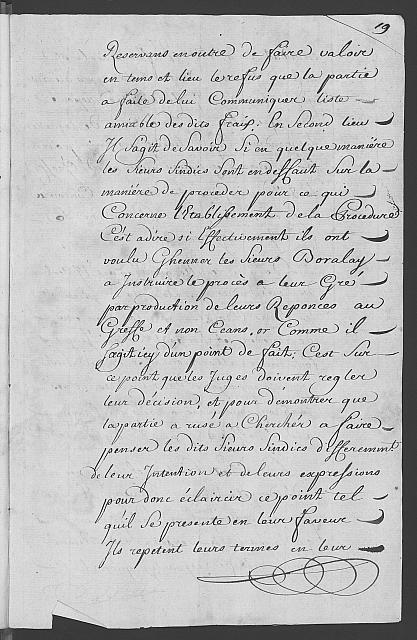 19
Reservans en outre de faire valoir
en tems et lieu le refus que la partie
a faite de lui Communiquer liste
amiable des dits fraix. En Second lieu
Il Sagit de Savoir Si en quelque maniére
les Sieurs Sindics Sont en deffaut Sur la
maniére de proceder pour ce qui
Concerne l'Etablissement de la Procedure
C'est adire si Effectivement ils ont
voulu les Sieurs Doralay
a Instruire le procès a leur Gré
par production de leurs Reponces au
Greffe et non Ceans, or Comme il
Sagit icy d'un point de fait, C'est Sur
ce point que les Juges doivent regler
leur décision, et pour démontrer que
la partie a rusé a Cherchér a faire
penser les dits Sieurs Sindics differement
de leur Intention et de leurs expressions
pour donc éclaircir ce point tel
qu'il Se presente en leur faveur
Ils repetent leurs termes en leur